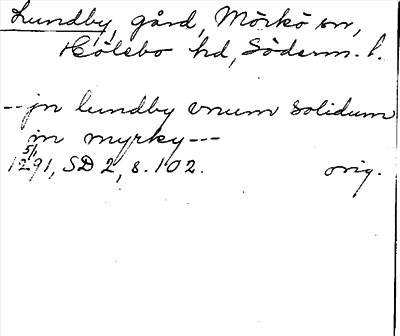 Lundby, gård, Mörkö sn,
Hölebo hd, Söderm. l.
-- jn lundby vnum solidum
in myrky ---
5/1
1291, SD 2, s. 102. orig.